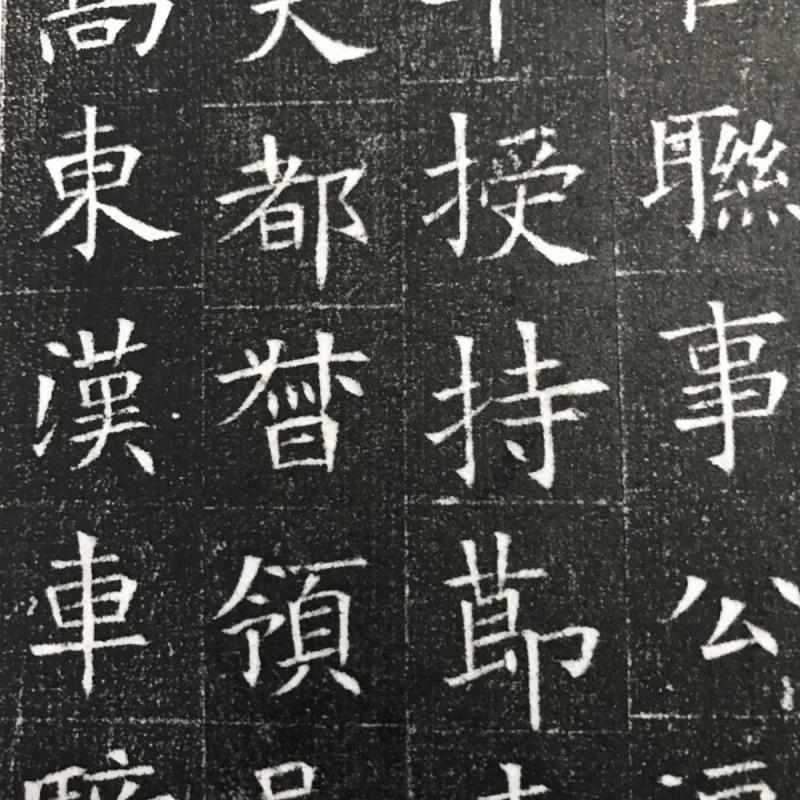 聯事公
授持莭
都督領
東漢車